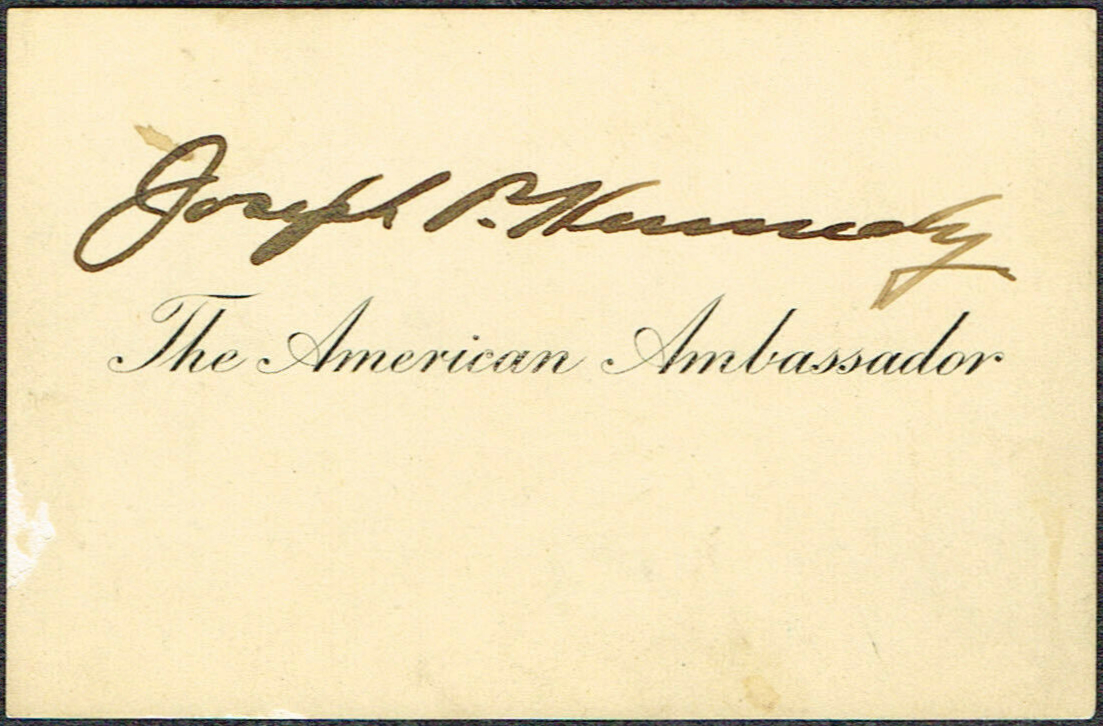 Joseph P. Kennedy
The American Ambassador